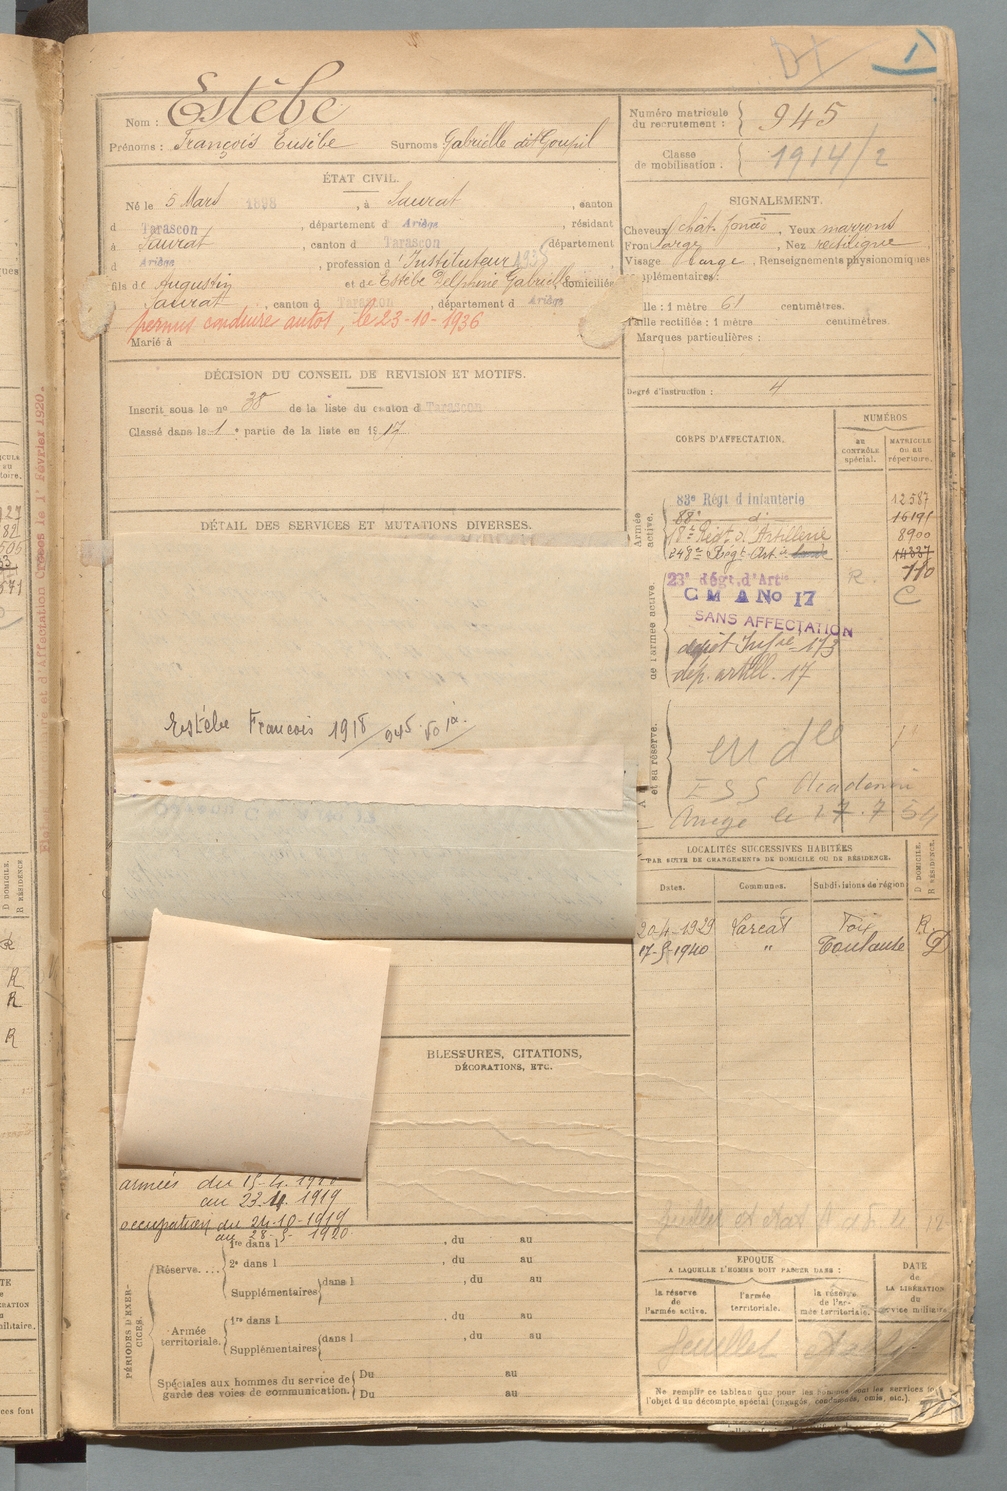 1
Nom : Estèbe
Prénoms : François Eusèbe Surnoms Gabrielle dit Goupil
Numéro matricule du recrutement : 945
Classe de mobilisation : 1914/2
ÉTAT CIVIL.
Né le 5 Mars 1898, à Saurat, canton
d Tarascon, département d Ariège, résidant
à Saurat, canton d Tarascon département
d Ariège, profession d'Instituteur 1935
fils de Augustin et de Estèbe Delphine Gabrielle domiciliés
Saurat, canton d Tarascon, département d Ariège
permis conduire autos, le 23-10-1936
Marié à
SIGNALEMENT.
Cheveux chât. foncés, Yeux marrons
Front large, Nez rectiligne
Visage large, Renseignements physionomiques
supplémentaires :
Taille : 1 mètre 61 centimètres.
Taille rectifiée : 1 mètre centimètres.
Marques particulières :
Degré d'instruction : 4
DÉCISION DU CONSEIL DE REVISION ET MOTIFS.
Inscrit sous le nº 38 de la liste du canton d Tarascon
Classé dans la 1e partie de la liste en 1917
DÉTAIL DES SERVICES ET MUTATIONS DIVERSES.
Estèbe François 1918 / 945
CORPS D'AFFECTATION.
NUMÉROS
AU CONTRÔLE spécial.
MATRICULE OU AU répertoire.
Armée active.
83e Régt d infanterie 12587
88e di 16191
18e Régt d'Artillerie 8900
248e Régt Art. 14337
de l'armée active.
23e régt. d'Artie R. 710
C M A No 17 C
SANS AFFECTATION
dépôt Infie 173
dép. artill. 17
et sa réserve.
Ariège le 27.7.54
LOCALITÉS SUCCESSIVES HABITÉES
PAR SUITE DE CHANGEMENTS DE DOMICILE OU DE RÉSIDENCE.
Dates. Communes. Subdivisions de région
D DOMICILE.
R RÉSIDENCE.
20-4-1929 Varcat Foix R.
17-5-1940 " Toulouse D
BLESSURES, CITATIONS,
DÉCORATIONS, ETC.
armées du 15-4.1918
au 23.10.1919
occupation du 24-10-1919
au 28-5-1920
PÉRIODES D'EXERCICES.
Réserve....
1re dans l , du au
2e dans l , du au
Supplémentaires dans l , du au
Armée territoriale.
1re dans l , du au
Supplémentaires dans l , du au
Spéciales aux hommes du service de garde des voies de communication.
Du au
Du au
ÉPOQUE
A LAQUELLE L'HOMME DOIT PASSER DANS :
la réserve de l'armée active.
l'armée territoriale.
la réserve de l'armée territoriale.
DATE DE LA LIBÉRATION du service militaire.
Ne remplir ce tableau que pour les hommes dont les services font
l'objet d'un décompte spécial (engagés, condamnés, omis, etc.).